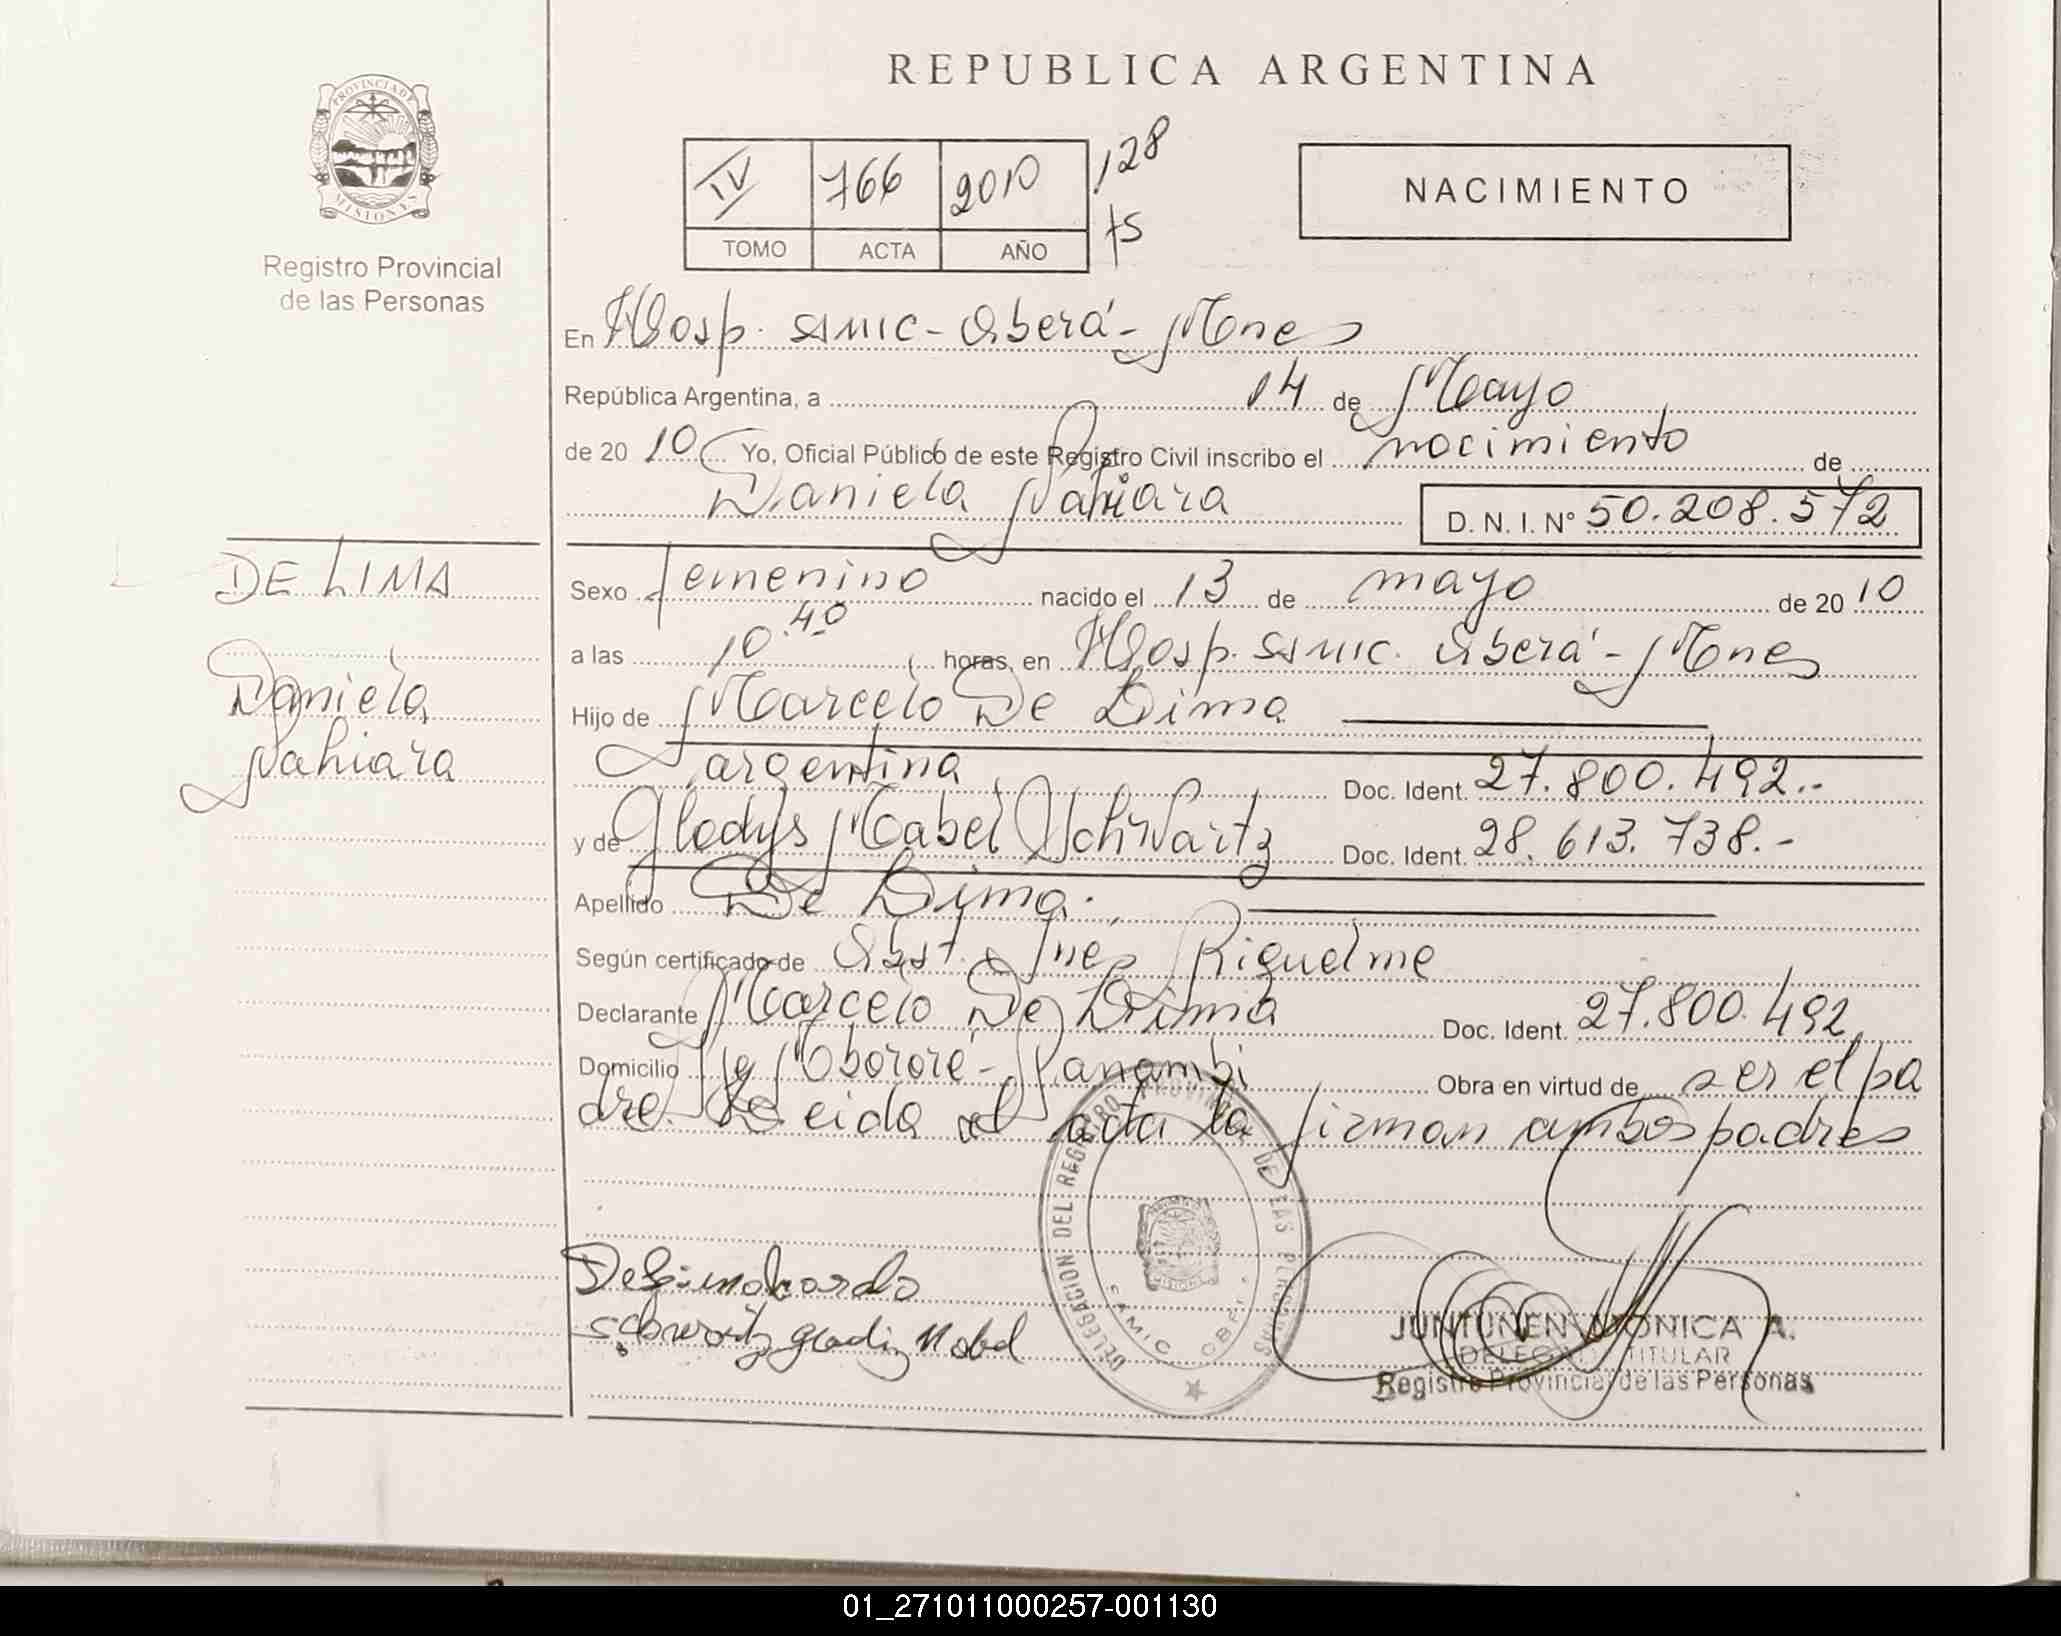 REPUBLICA ARGENTINA
PROVINCIA DE
MISIONES
Registro Provincial
de las Personas
IV 766 2010 128
TOMO ACTA AÑO 75
NACIMIENTO
En Hosp. SAMIC - Oberá - Mnes
República Argentina, a 14 de Mayo
de 20 10 Yo, Oficial Público de este Registro Civil inscribo el nacimiento de
Daniela Nahiara D. N. I. Nº 50.208.572
DE LIMA
Daniela
Nahiara
Sexo femenino nacido el 13 de mayo de 20 10
a las 10.40 horas, en Hosp. SAMIC. Oberá - Mnes
Hijo de Marcelo De Lima
argentina Doc. Ident. 27.800.492.-
y de Gladys Mabel Schwartz Doc. Ident. 28.613.738.-
Apellido De Lima.
Según certificado de Obst. Ines Riquelme
Declarante Marcelo De Lima Doc. Ident. 27.800.492
Domicilio Mbororé - Panambi Obra en virtud de ser el pa
dre. Leida el acta la firman ambos padres
DELEGACION DEL REGISTRO PROVINCIAL DE LAS PERSONAS
MISIONES
SAMIC OBERA
schwartz gladiz Mabel
JUNTUNEN MONICA A.
DELEGADO TITULAR
Registro Provincial de las Personas
01_271011000257-001130